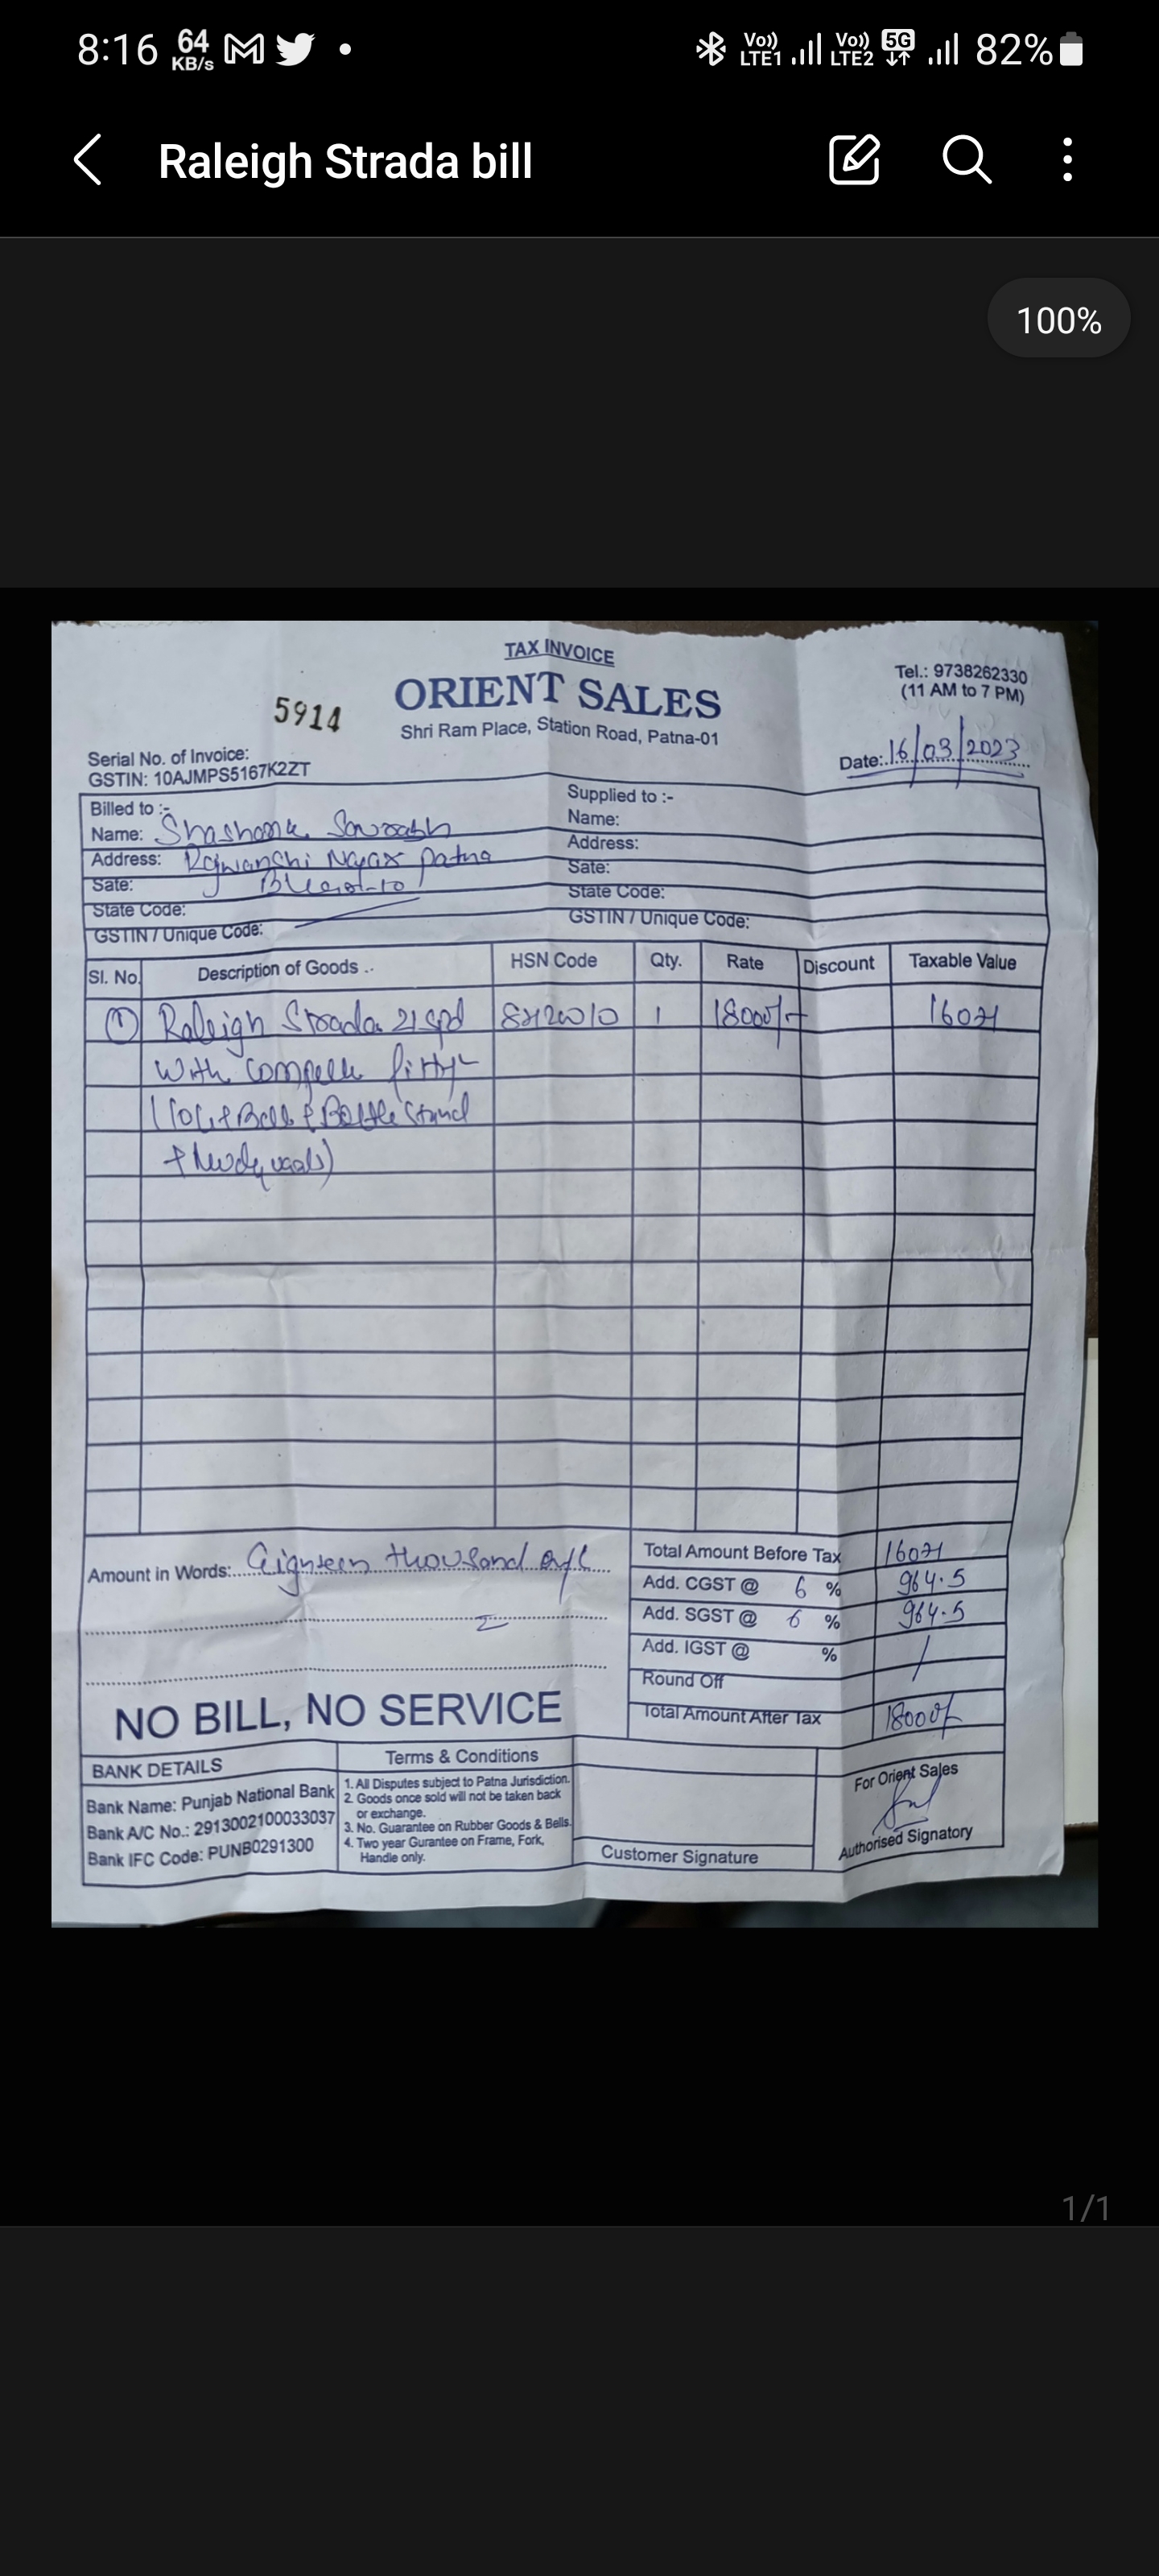 8:16 64 KB/s Vo)) LTE1 Vo)) LTE2 5G 82%
Raleigh Strada bill
100%
TAX INVOICE
ORIENT SALES
Shri Ram Place, Station Road, Patna-01
Tel.: 9738262330
(11 AM to 7 PM)
5914
Serial No. of Invoice:
GSTIN: 10AJMPS5167K2ZT
Date: 16/03/2023
Billed to :-
Name: Shashank Saurabh
Address: Nagar Patna
Sate:
State Code:
GSTIN / Unique Code:
Supplied to :-
Name:
Address:
Sate:
State Code:
GSTIN / Unique Code:
Sl. No. Description of Goods .. HSN Code Qty. Rate Discount Taxable Value
1 Raleigh Strada 21 spd 1 18000/- 16071
With
Bottle Stand
Amount in Words: thousand only
Total Amount Before Tax 16071
Add. CGST @ 6 % 964.5
Add. SGST @ 6 % 964.5
Add. IGST @ % /
Round Off
Total Amount After Tax 18000/-
NO BILL, NO SERVICE
BANK DETAILS
Bank Name: Punjab National Bank
Bank A/C No.: 2913002100033037
Bank IFC Code: PUNB0291300
Terms & Conditions
1. All Disputes subject to Patna Jurisdiction.
2. Goods once sold will not be taken back
or exchange.
3. No. Guarantee on Rubber Goods & Bells.
4. Two year Gurantee on Frame, Fork,
Handle only.
Customer Signature
For Orient Sales
Authorised Signatory
1/1